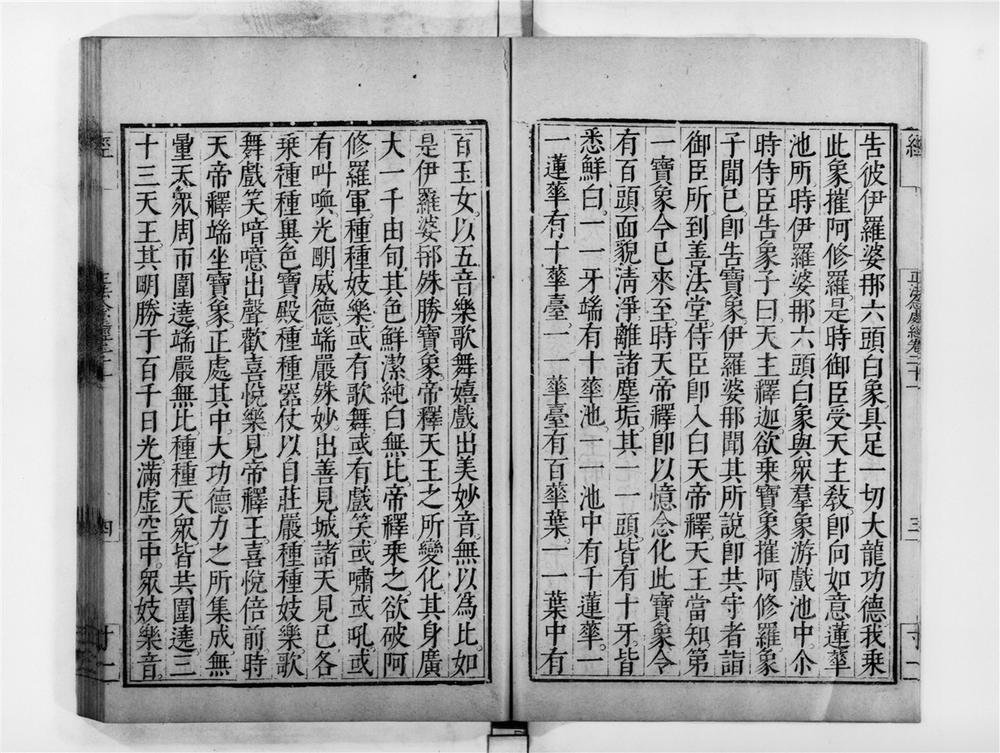 告彼伊羅婆那六頭白象具足一切大龍功德我乘
此象摧阿修羅是時御臣受天主敎卽向如意蓮華
池所時伊羅婆那六頭白象與衆羣象游戲池中尒
時侍臣告象子曰天主釋迦欲乘寶象摧阿修羅象
子聞已卽告寶象伊羅婆那聞其所說卽共守者詣
御臣所到善法堂侍臣卽入白天帝釋天王當知第
一寶象今已來至時天帝釋卽以憶念化此寶象令
有百頭面貌淸淨離諸塵垢其一一頭皆有十牙皆
悉鮮白一一牙端有十華池一一池中有千蓮華一
一蓮華有十華臺一一華臺有百華葉一一葉中有
正法念處經卷二十一
三
百玉女以五音樂歌舞嬉戲出美妙音無以爲比如
是伊羅婆那殊勝寶象帝釋天王之所變化其身廣
大一千由旬其色鮮潔純白無比帝釋乘之欲破阿
修羅軍種種妓樂或有歌舞或有戲笑或嘯或吼或
有叫喚光明威德端嚴殊妙出善見城諸天見已各
乘種種異色寶殿種種器仗以自莊嚴種種妓樂歌
舞戲笑喑噫出聲歡喜悅樂見帝釋王喜悅倍前時
天帝釋端坐寶象正處其中大功德力之所集成無
量天衆周帀圍遶端嚴無比種種天衆皆共圍遶三
十三天王其明勝于百千日光滿虛空中衆妓樂音
四